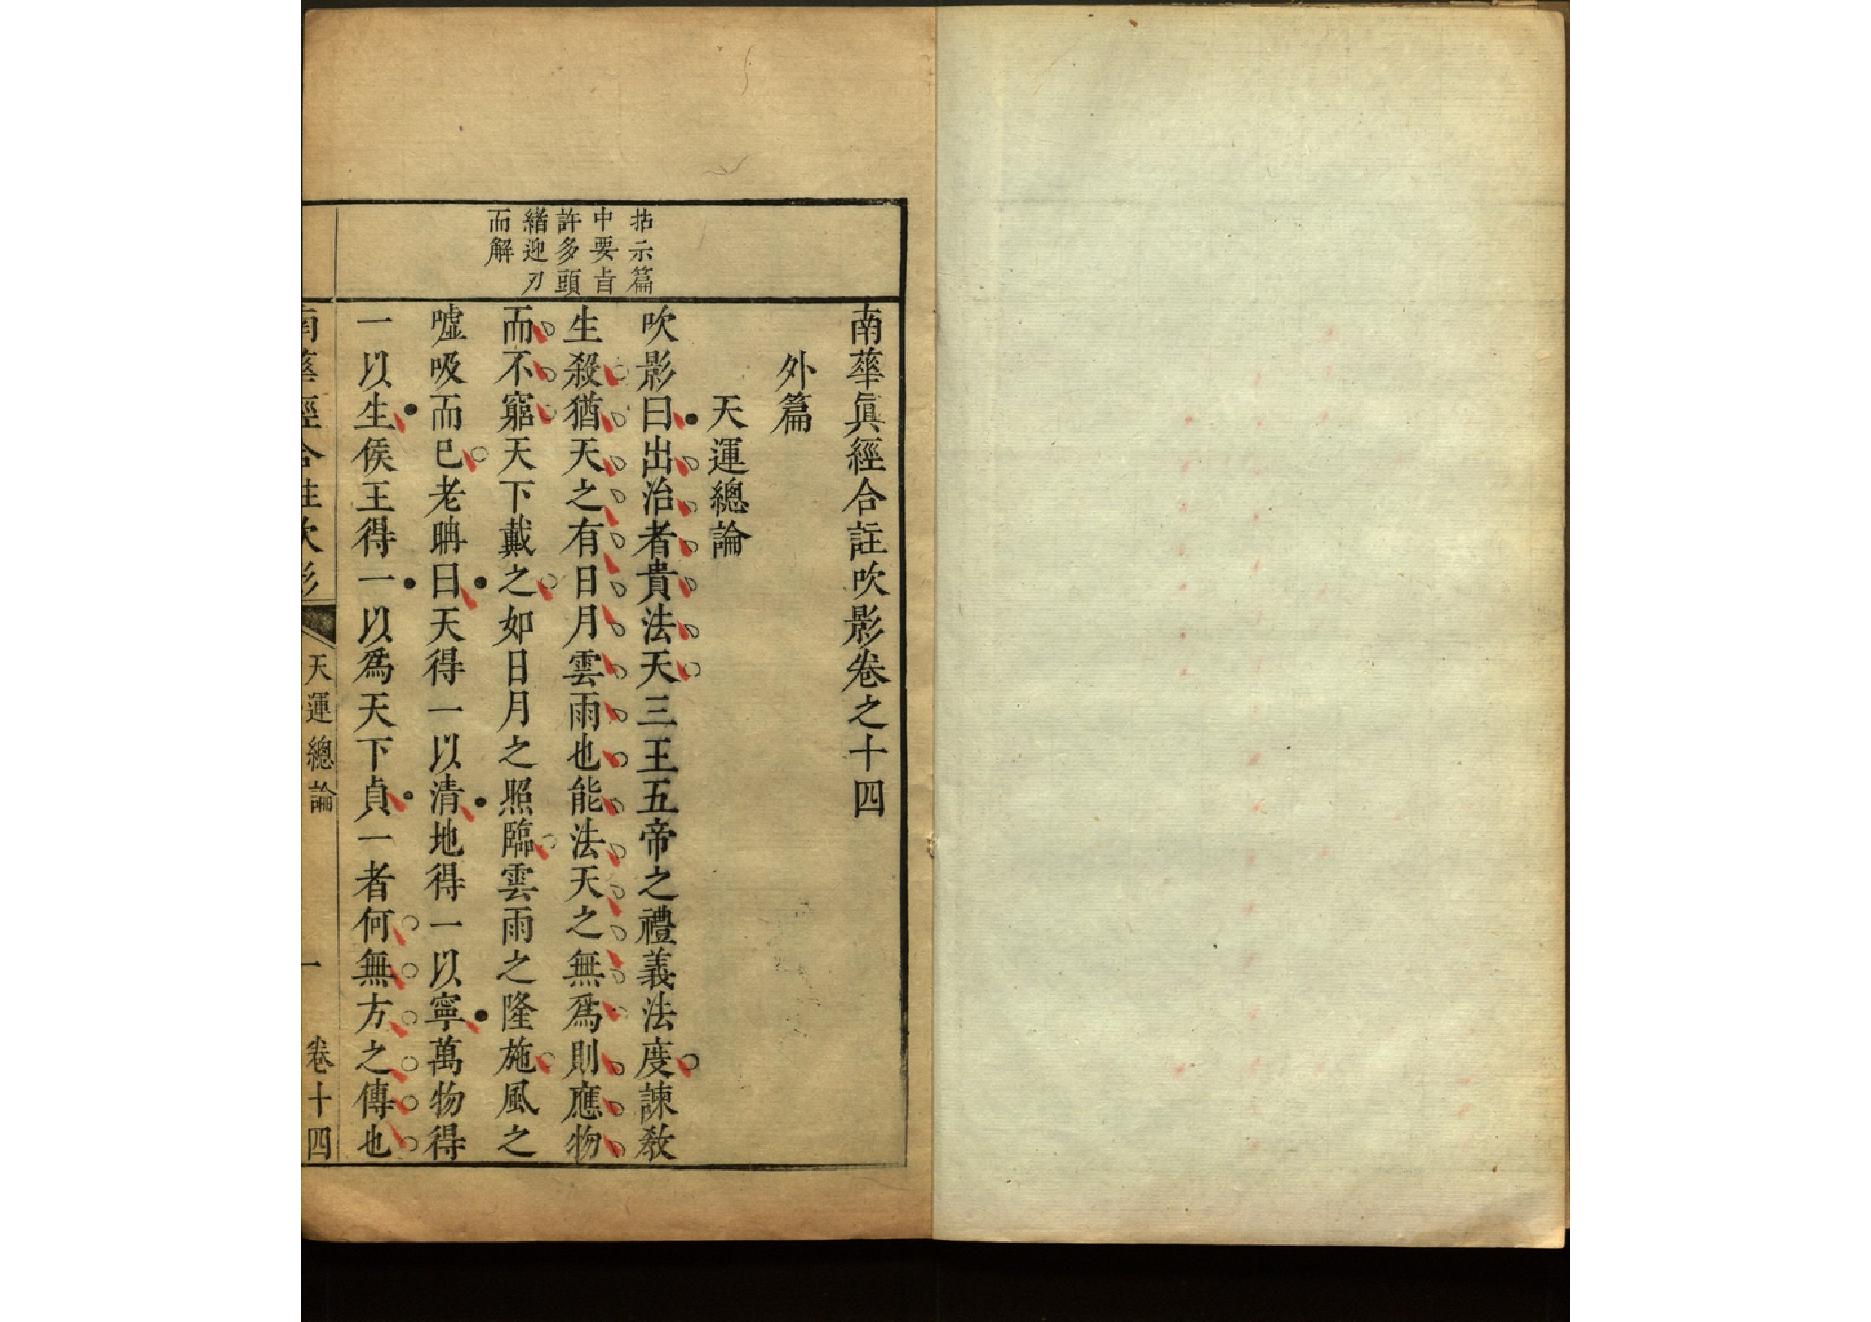 南華眞經合註吹影卷之十四
外篇
天運總論
吹影曰出治者貴法天三王五帝之禮義法度諫敎
生殺猶天之有日月雲雨也能法天之無爲則應物
而不窮天下戴之如日月之照臨雲雨之隆施風之
噓吸而已老聃曰天得一以清地得一以寧萬物得
一以生侯王得一以爲天下貞一者何無方之傳也
拈示篇
中要旨
許多頭
緒迎刃
而解
南華經合註吹影
天運總論
一
卷十四